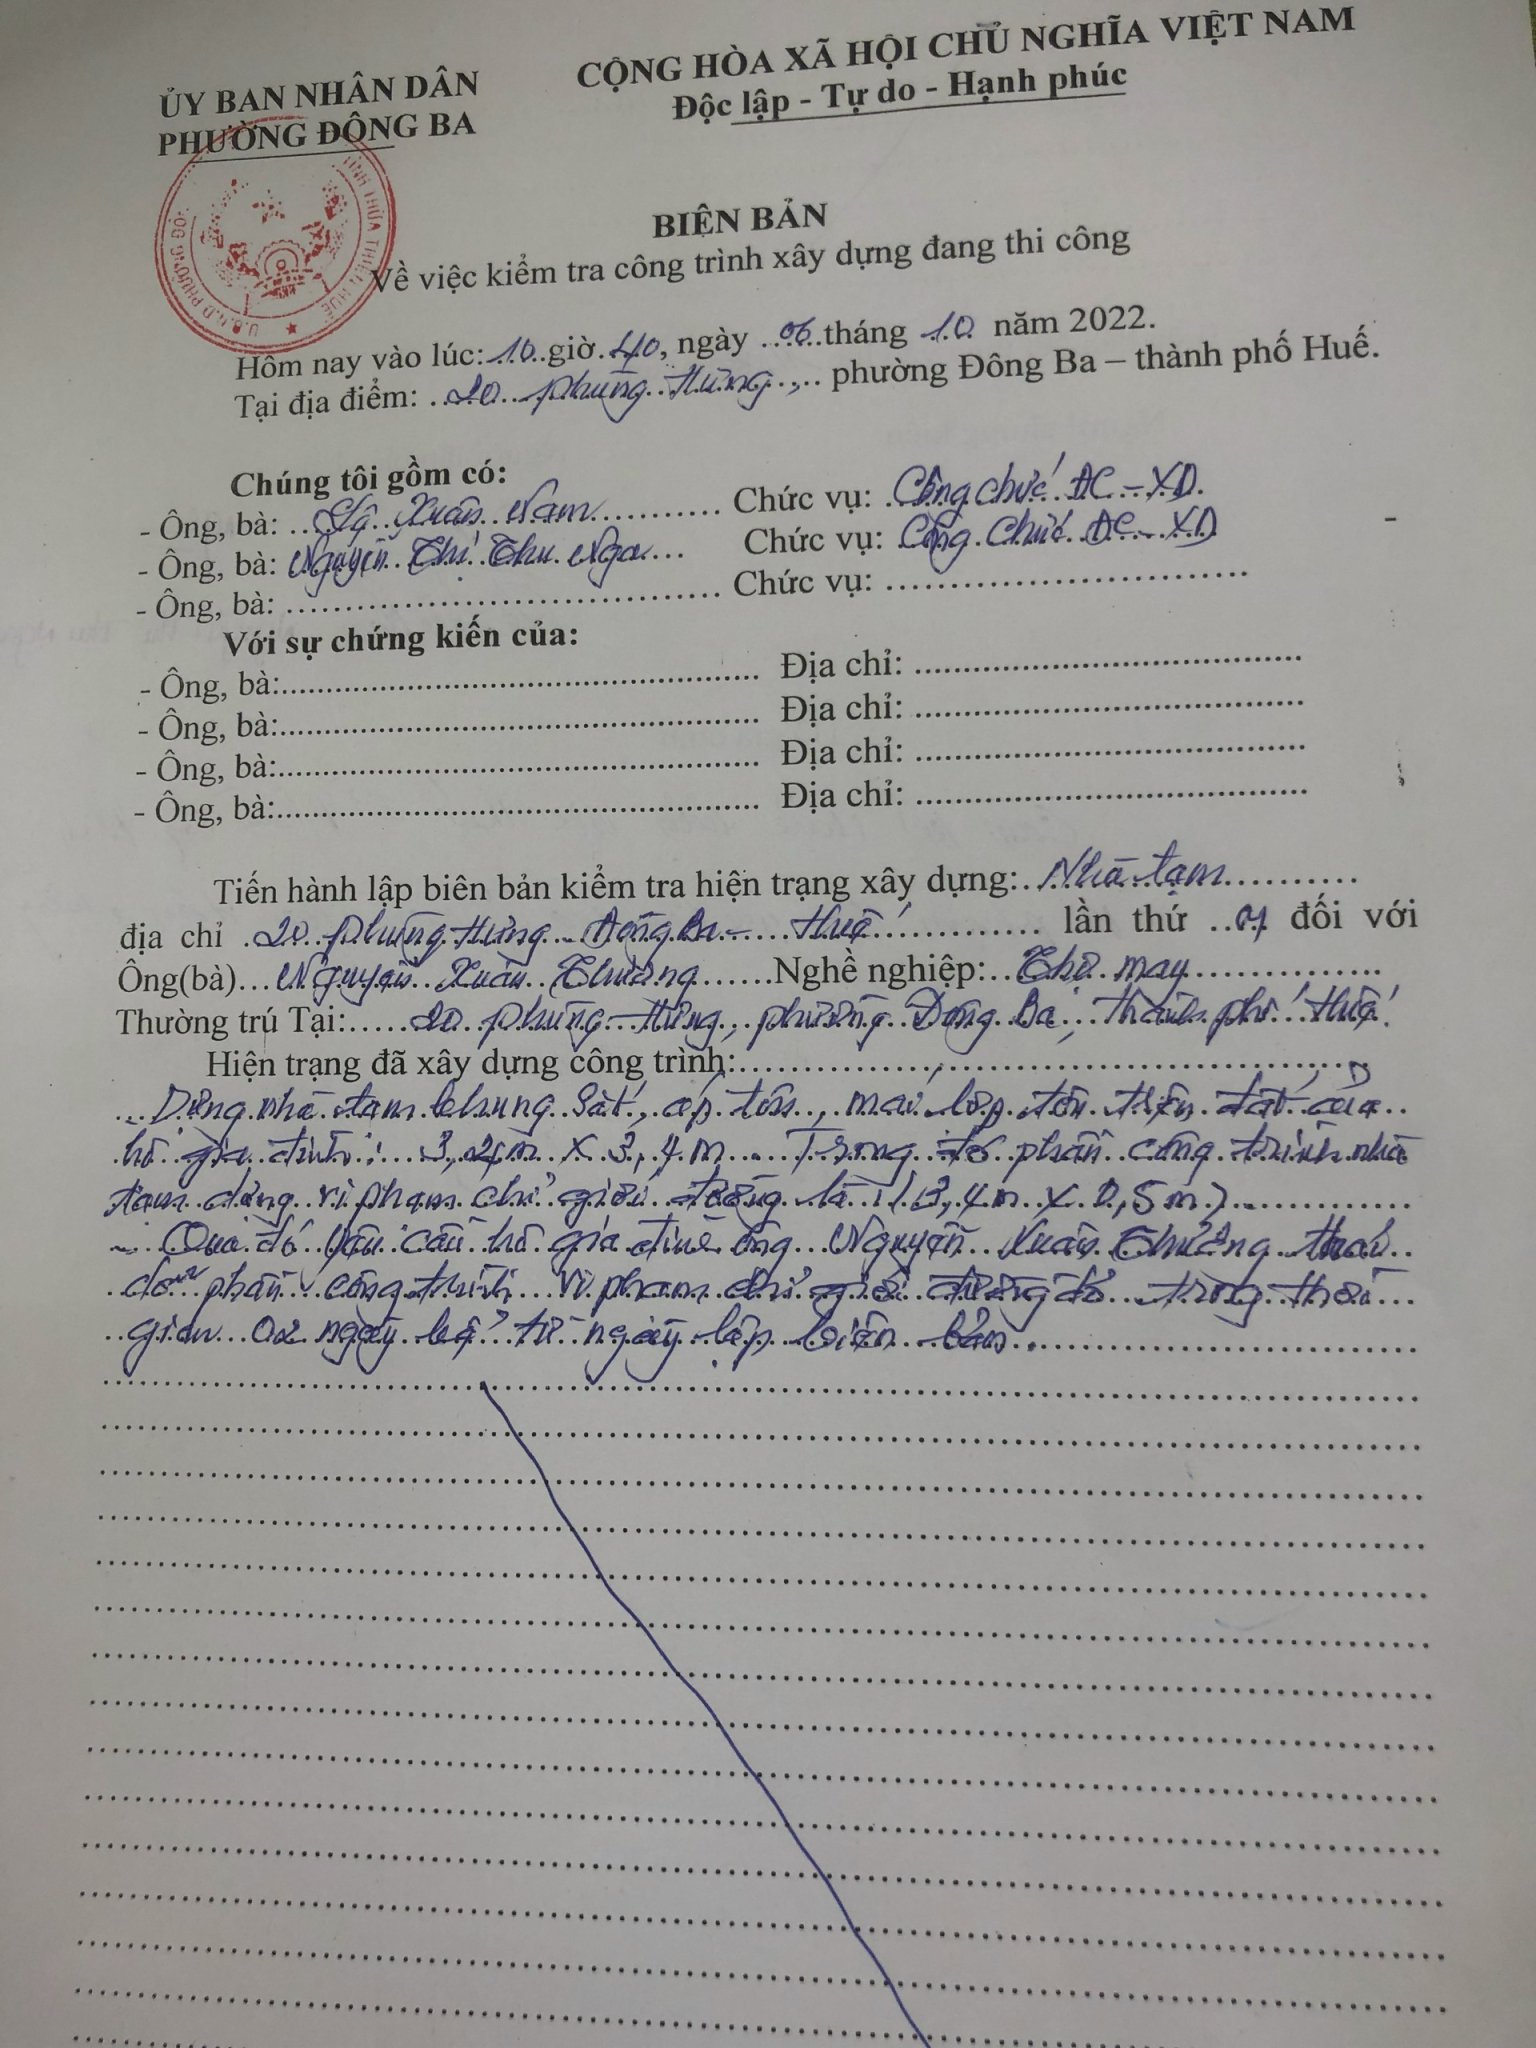 CỘNG HÒA XÃ HỘI CHỦ NGHĨA VIỆT NAM
Độc lập - Tự do - Hạnh phúc
ỦY BAN NHÂN DÂN
PHƯỜNG ĐÔNG BA
U.B.N.D PHƯỜNG ĐÔ
TỈNH THỪA THIÊN HUẾ
BIÊN BẢN
Về việc kiểm tra công trình xây dựng đang thi công
Hôm nay vào lúc: 10 giờ 40, ngày 06 tháng 10 năm 2022.
Tại địa điểm: 20 Phùng Hưng, phường Đông Ba – thành phố Huế.
Chúng tôi gồm có:
- Ông, bà: Xuân Nam Chức vụ: Công chức ĐC - XD
- Ông, bà: Nguyễn Thị Thu Nga Chức vụ: Công Chức ĐC - XD
- Ông, bà: Chức vụ:
Với sự chứng kiến của:
- Ông, bà: Địa chỉ:
- Ông, bà: Địa chỉ:
- Ông, bà: Địa chỉ:
- Ông, bà: Địa chỉ:
Tiến hành lập biên bản kiểm tra hiện trạng xây dựng: Nhà tạm
địa chỉ 20 Phùng Hưng - Đông Ba - Huế lần thứ 01 đối với
Ông(bà) Nguyễn Xuân Thưởng Nghề nghiệp: Thợ may
Thường trú Tại: 20 Phùng Hưng, phường Đông Ba, thành phố Huế
Hiện trạng đã xây dựng công trình:
Dựng nhà tạm khung sắt, ốp tôn, mái lợp tôn trên đất của
hộ gia đình: 3,4m x 3,4m. Trong đó phần công trình nhà
tạm dựng vi phạm chỉ giới đường là (3,4m x 0,5m)
Qua đó yêu cầu hộ gia đình ông Nguyễn Xuân Thưởng tháo
dỡ phần công trình vi phạm chỉ giới đường đỏ trong thời
gian 02 ngày kể từ ngày lập biên bản.